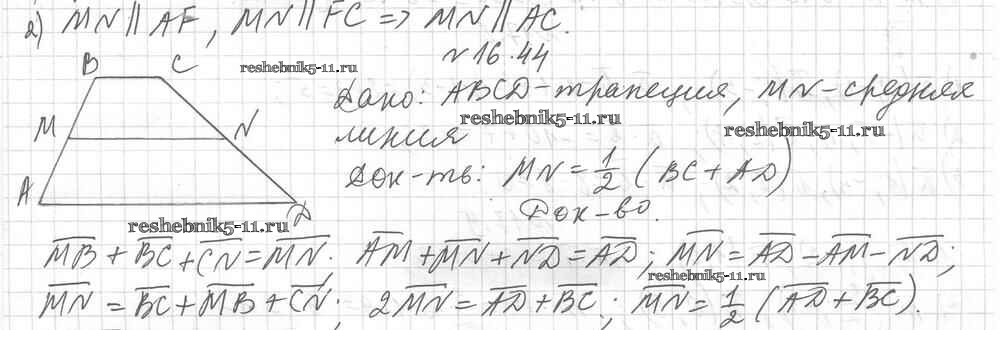 2) MN ∥ AF, MN ∥ FC => MN ∥ AC.
№ 16.44
B C
reshebnik5-11.ru
Дано: ABCD - трапеция, MN - средняя
reshebnik5-11.ru
reshebnik5-11.ru
M N
линия
Док-ть: MN = 1/2 (BC + AD)
A D
Док-во.
reshebnik5-11.ru
M̅B̅ + B̅C̅ + C̅N̅ = M̅N̅. A̅M̅ + M̅N̅ + N̅D̅ = A̅D̅; M̅N̅ = A̅D̅ - A̅M̅ - N̅D̅;
reshebnik5-11.ru
M̅N̅ = B̅C̅ + M̅B̅ + C̅N̅; 2M̅N̅ = A̅D̅ + B̅C̅; M̅N̅ = 1/2 (A̅D̅ + B̅C̅).